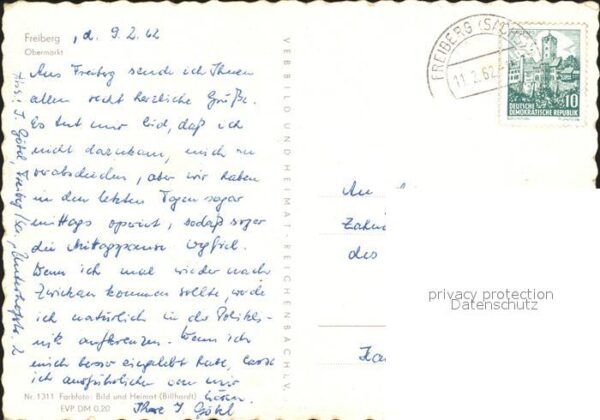 Freiberg
, d. 9. 2. 62
Obermarkt
Aus Freiberg sende ich Ihnen
allen recht herzliche Grüße.
Es tut mir leid, daß ich
nicht dazukam, mich zu
verabschieden, aber wir haben
in den letzten Tagen sogar
mittags operiert, sodaß sogar
die Mittagspause wegfiel.
Wenn ich mal wieder nach
Zwickau kommen sollte, werde
ich natürlich in der Polikli-
nik aufkreuzen. Wenn ich
mich besser eingelebt habe, lasse
ich ausführlicher von mir
hören.
Ihre I. Göhl
Nr. 1311 Farbfoto: Bild und Heimat (Billhardt)
EVP DM 0,20
I. Göhl, Freiberg/Sa.,
VEB BILD UND HEIMAT · REICHENBACH I. V.
FREIBERG (SACHS)
11. 2. 62
10
DEUTSCHE
DEMOKRATISCHE REPUBLIK
An
des
privacy protection
Datenschutz